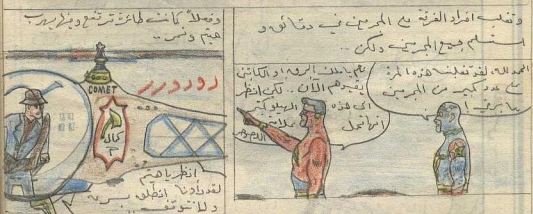 وتغلب افراد الفرقة مع المجرمين في دقائق و
استسلم جميع المجرمين ولكن..
الحمد لله لقد تغلبنا هذه المرة
مع عدد كبير من المجرمين
نعم يا ملك البرق و الكابتن
يقودهم الآن.. لكن انظر
الى هذه
انها تحمل
وفعلاً كانت طائرة ترتفع وبها يهرب
هيثم ونمر..
COMET
رورورر
كمال
انظر يا هيثم
لقد رأونا انطلق بسرعة
ولا تتوقف